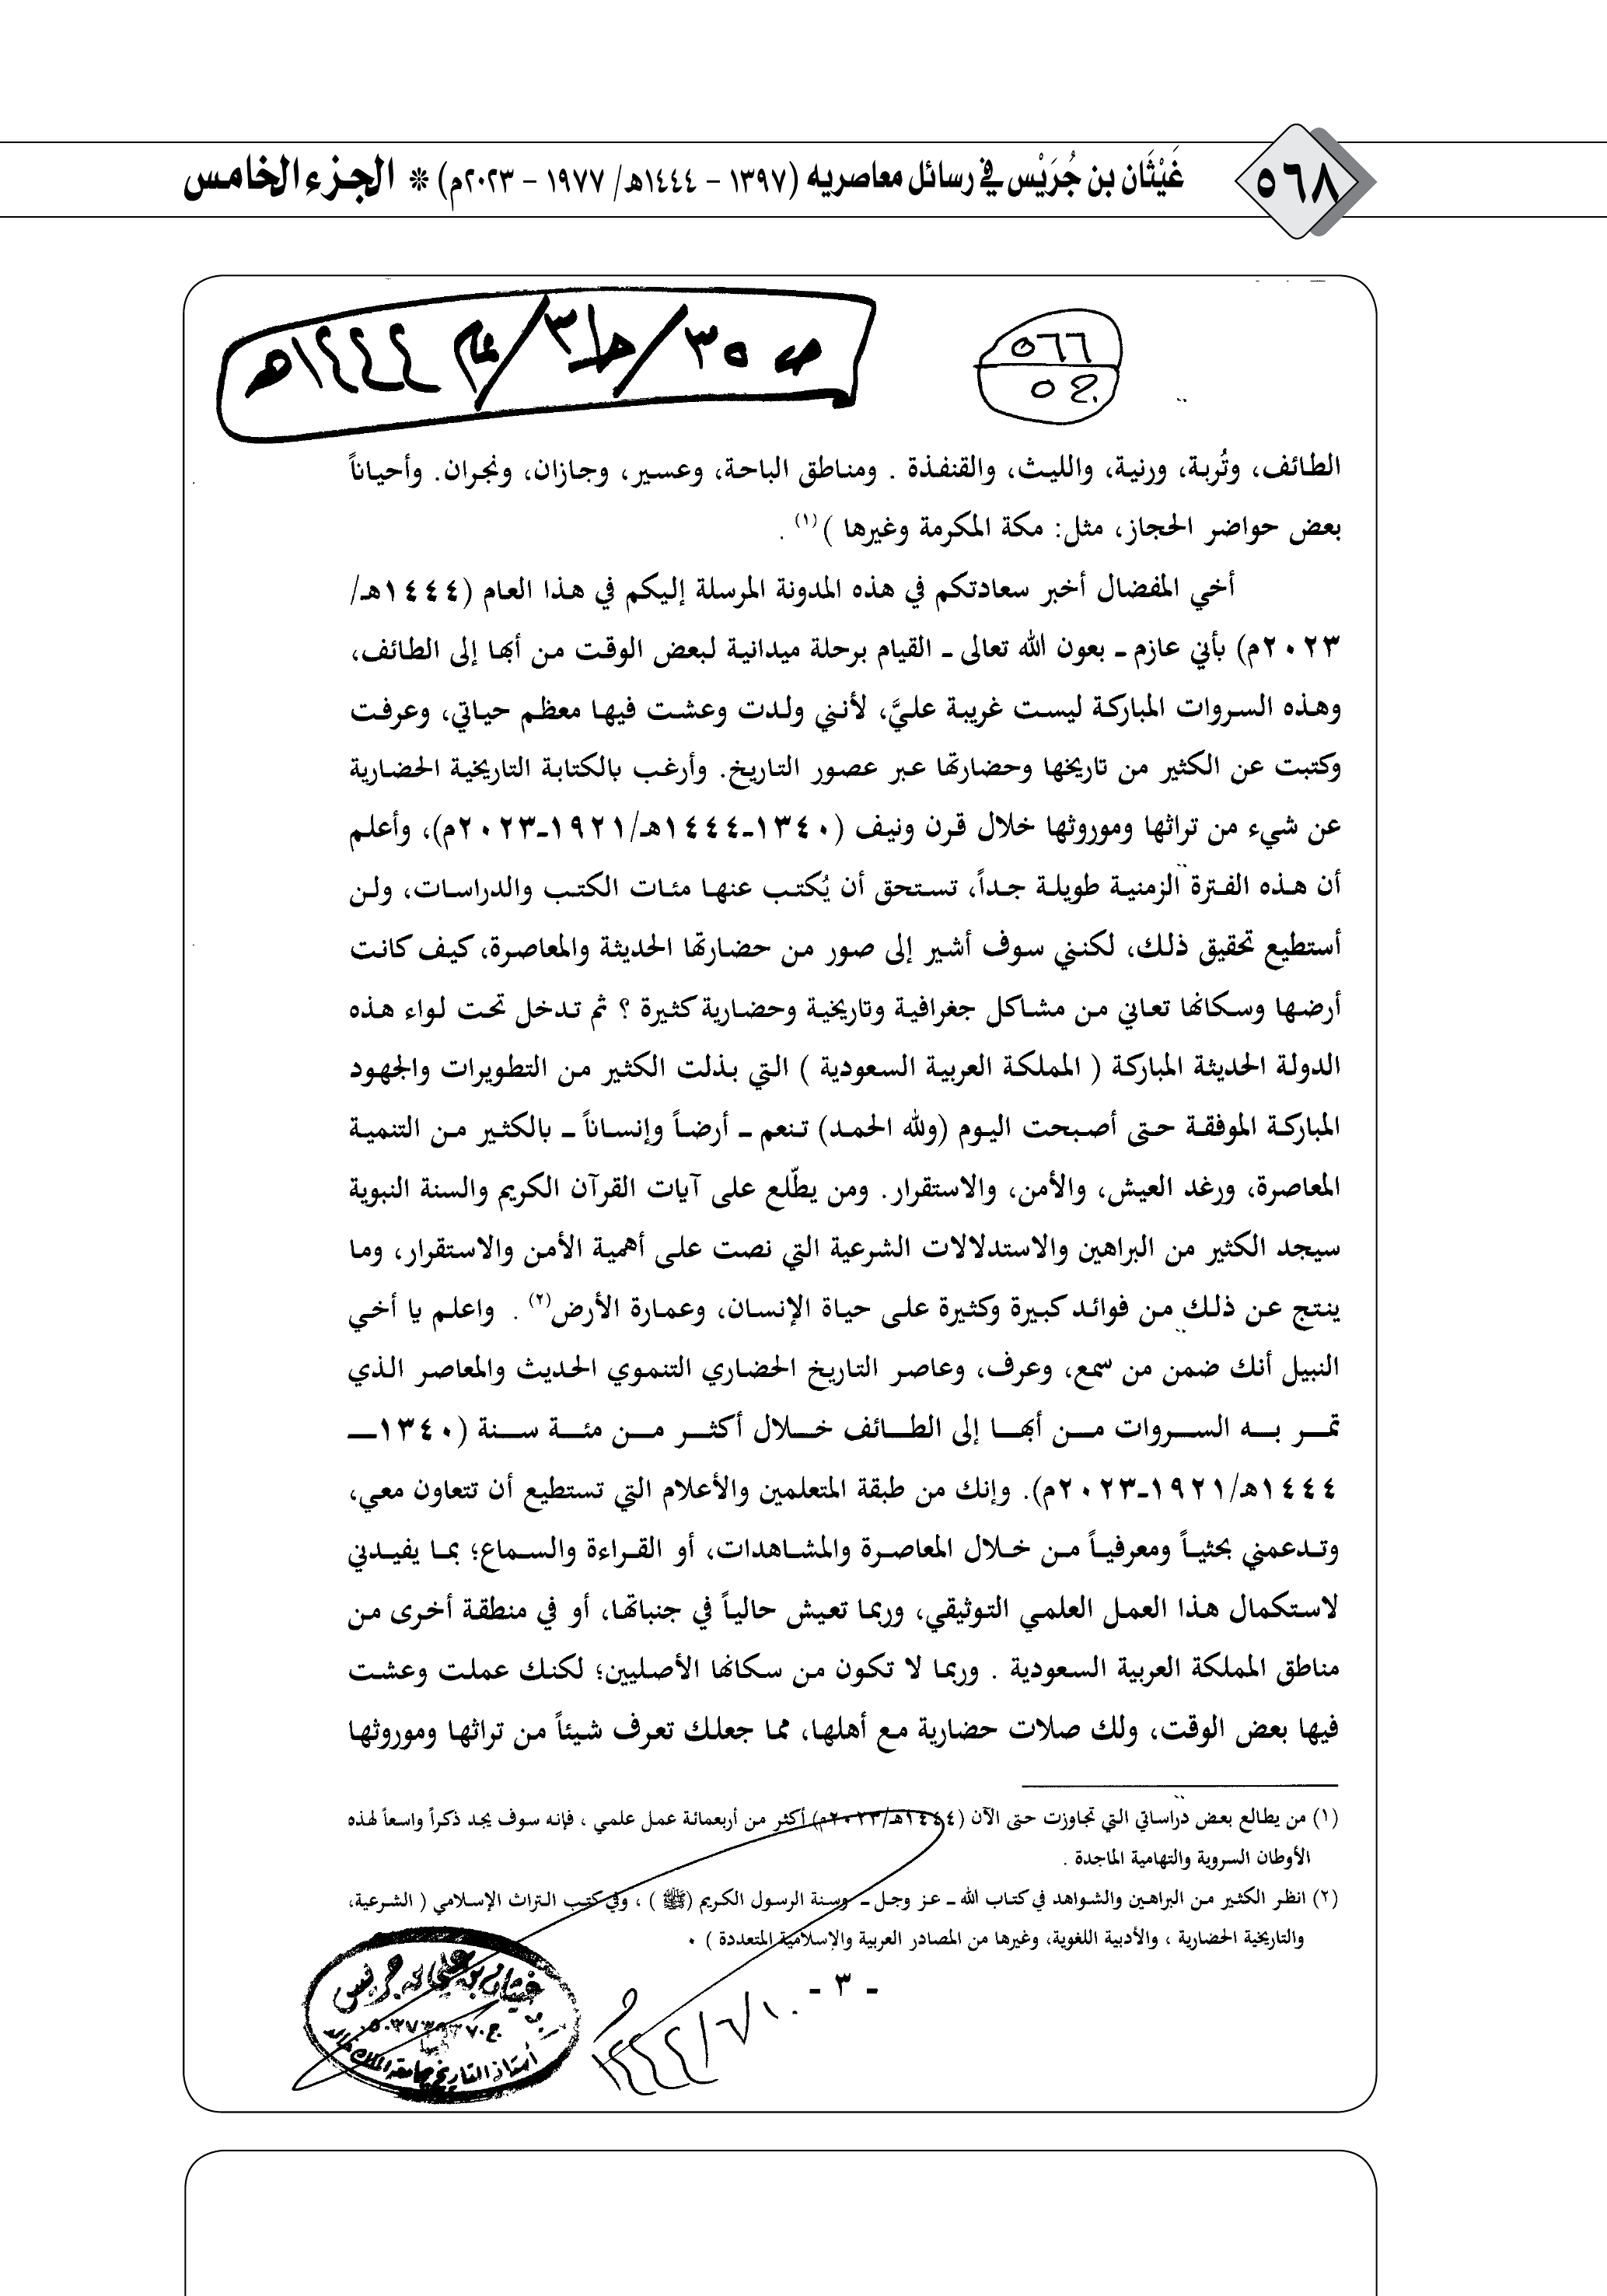 ٥٦٨
غَيْثَان بن جُرَيْس في رسائل معاصريه (١٣٩٧ - ١٤٤٤هـ/ ١٩٧٧ - ٢٠٢٣م) * الجزء الخامس
٥٦٦
ج٥
ص ٣٥/ح٣/عام ١٤٤٤هـ
الطائف، وتُربة، ورنية، والليث، والقنفذة . ومناطق الباحة، وعسير، وجازان، ونجران. وأحياناً
بعض حواضر الحجاز، مثل: مكة المكرمة وغيرها )(١) .
أخي المفضال أخبر سعادتكم في هذه المدونة المرسلة إليكم في هذا العام (١٤٤٤هـ/
٢٠٢٣م) بأني عازم ـ بعون الله تعالى ـ القيام برحلة ميدانية لبعض الوقت من أبها إلى الطائف،
وهذه السروات المباركة ليست غريبة عليَّ، لأنني ولدت وعشت فيها معظم حياتي، وعرفت
وكتبت عن الكثير من تاريخها وحضارتها عبر عصور التاريخ. وأرغب بالكتابة التاريخية الحضارية
عن شيء من تراثها وموروثها خلال قرن ونيف (١٣٤٠ـ١٤٤٤هـ/١٩٢١ـ٢٠٢٣م)، وأعلم
أن هذه الفترة الزمنية طويلة جداً، تستحق أن يُكتب عنها مئات الكتب والدراسات، ولن
أستطيع تحقيق ذلك، لكنني سوف أشير إلى صور من حضارتها الحديثة والمعاصرة، كيف كانت
أرضها وسكانها تعاني من مشاكل جغرافية وتاريخية وحضارية كثيرة ؟ ثم تدخل تحت لواء هذه
الدولة الحديثة المباركة ( المملكة العربية السعودية ) التي بذلت الكثير من التطويرات والجهود
المباركة الموفقة حتى أصبحت اليوم (ولله الحمد) تنعم ـ أرضاً وإنساناً ـ بالكثير من التنمية
المعاصرة، ورغد العيش، والأمن، والاستقرار. ومن يطّلع على آيات القرآن الكريم والسنة النبوية
سيجد الكثير من البراهين والاستدلالات الشرعية التي نصت على أهمية الأمن والاستقرار، وما
ينتج عن ذلك من فوائد كبيرة وكثيرة على حياة الإنسان، وعمارة الأرض(٢) . واعلم يا أخي
النبيل أنك ضمن من سمع، وعرف، وعاصر التاريخ الحضاري التنموي الحديث والمعاصر الذي
تمر به السروات من أبها إلى الطائف خلال أكثر من مئة سنة (١٣٤٠ـ
١٤٤٤هـ/١٩٢١ـ٢٠٢٣م). وإنك من طبقة المتعلمين والأعلام التي تستطيع أن تتعاون معي،
وتدعمني بحثياً ومعرفياً من خلال المعاصرة والمشاهدات، أو القراءة والسماع؛ بما يفيدني
لاستكمال هذا العمل العلمي التوثيقي، وربما تعيش حالياً في جنباتها، أو في منطقة أخرى من
مناطق المملكة العربية السعودية . وربما لا تكون من سكانها الأصليين؛ لكنك عملت وعشت
فيها بعض الوقت، ولك صلات حضارية مع أهلها، مما جعلك تعرف شيئاً من تراثها وموروثها
(١) من يطالع بعض دراساتي التي تجاوزت حتى الآن (١٤٤٤هـ/٢٠٢٣م) أكثر من أربعمائة عمل علمي ، فإنه سوف يجد ذكراً واسعاً لهذه
الأوطان السروية والتهامية الماجدة .
(٢) انظر الكثير من البراهين والشواهد في كتاب الله ـ عز وجل ـ وسنة الرسول الكريم (ﷺ) ، وفي كتب التراث الإسلامي ( الشرعية،
والتاريخية الحضارية ، والأدبية اللغوية، وغيرها من المصادر العربية والإسلامية المتعددة ) .
- ٣ -
غيثان بن علي بن جريس
أستاذ التاريخ جامعة الملك خالد